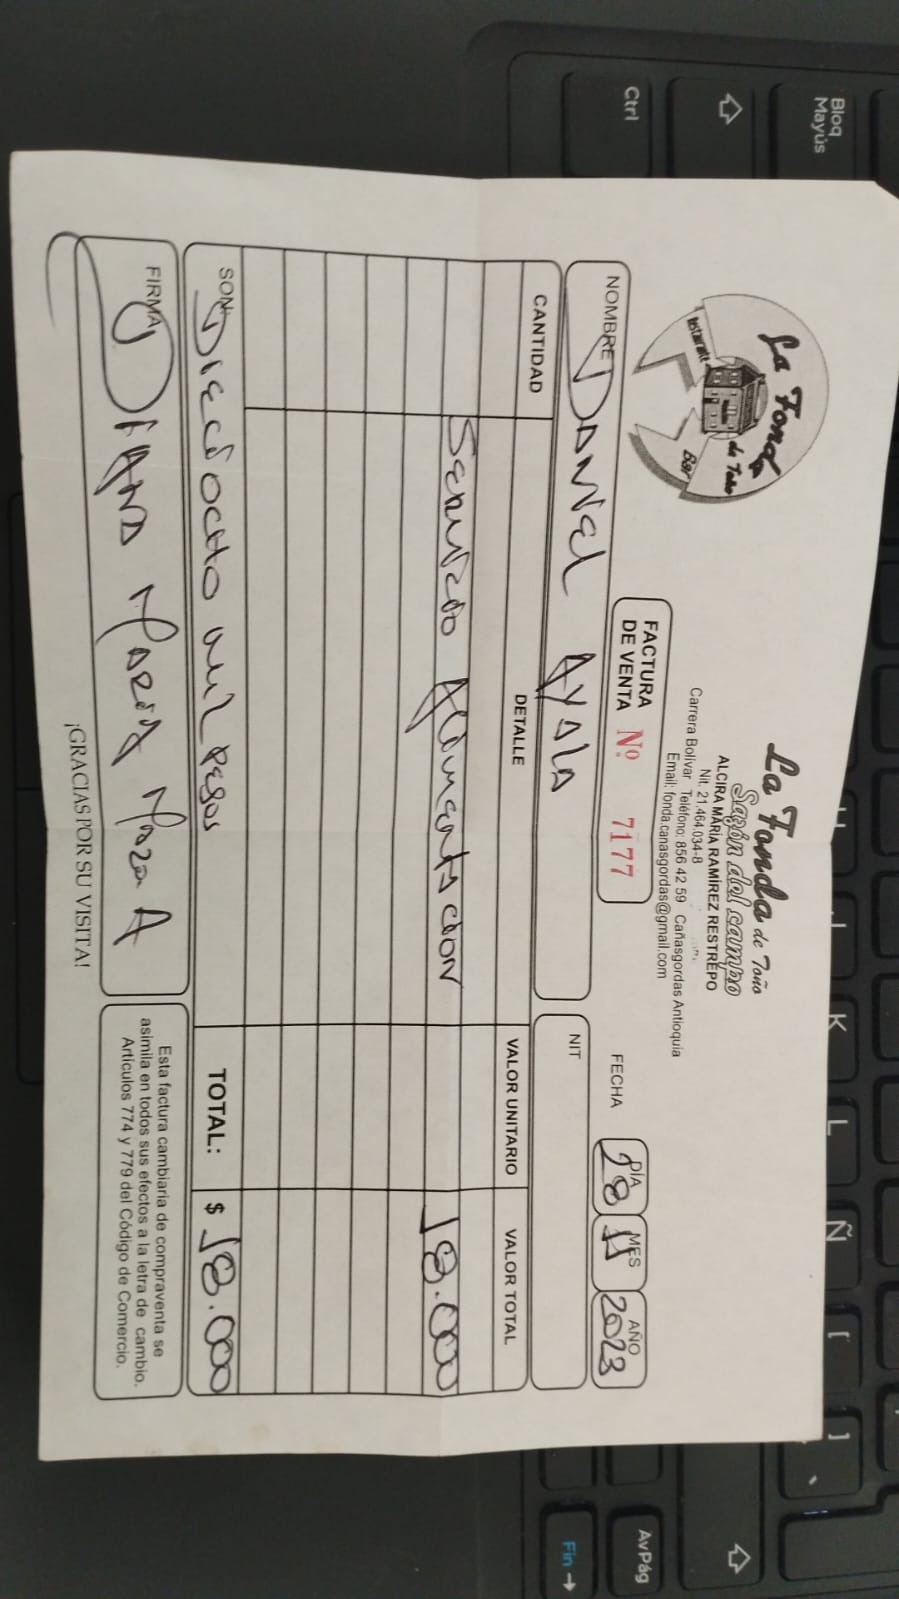 La Fonda
de Toño
Restaurante
Bar
La Fonda de Toño
Sazón del campo
ALCIRA MARÍA RAMÍREZ RESTREPO
Nit. 21.464.034-8
Carrera Bolívar Teléfono: 856 42 59 Cañasgordas Antioquia
Email: fonda.canasgordas@gmail.com
FACTURA DE VENTA Nº 7177
FECHA DÍA 28 MES 11 AÑO 2023
NOMBRE Daniel Ayala NIT
CANTIDAD DETALLE VALOR UNITARIO VALOR TOTAL
Servicio Alimentación 18.000
SON: Dieciocho mil pesos TOTAL: $ 18.000
FIRMA Diana María A
Esta factura cambiaria de compraventa se
asimila en todos sus efectos a la letra de cambio.
Artículos 774 y 779 del Código de Comercio.
¡GRACIAS POR SU VISITA!
Bloq Mayús
Ctrl
K
L
Ñ
[
]
AvPág
Fin